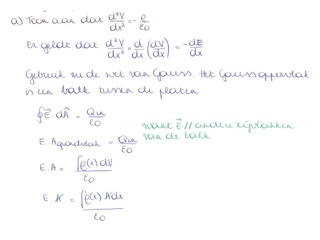 a) Toon aan dat d²V/dx² = -ρ/ε₀
Er geldt dat d²V/dx² = d/dx (dV/dx) = -dE/dx
Gebruik nu de wet van Gauss. Het Gaussoppervlak
is een balk tussen de platen
∮E⃗ dA⃗ = Qin/ε₀
want E⃗ // andere zijvlakken
van de balk
E. Agrondvlak = Qin/ε₀
E. A = ∫ρ(x) dV/ε₀
E. A = ∫ρ(x) A dx/ε₀